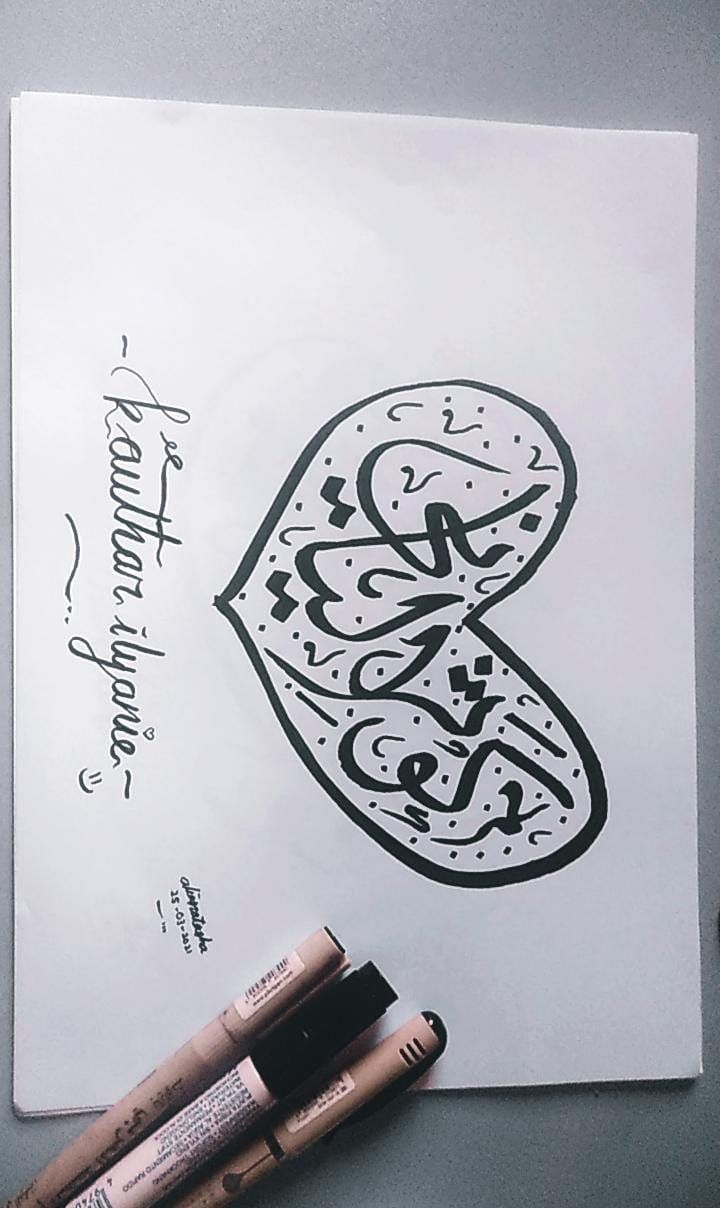 كوثر الياني
- kauthar ilyanie -
aliaanatasha
25-03-2021